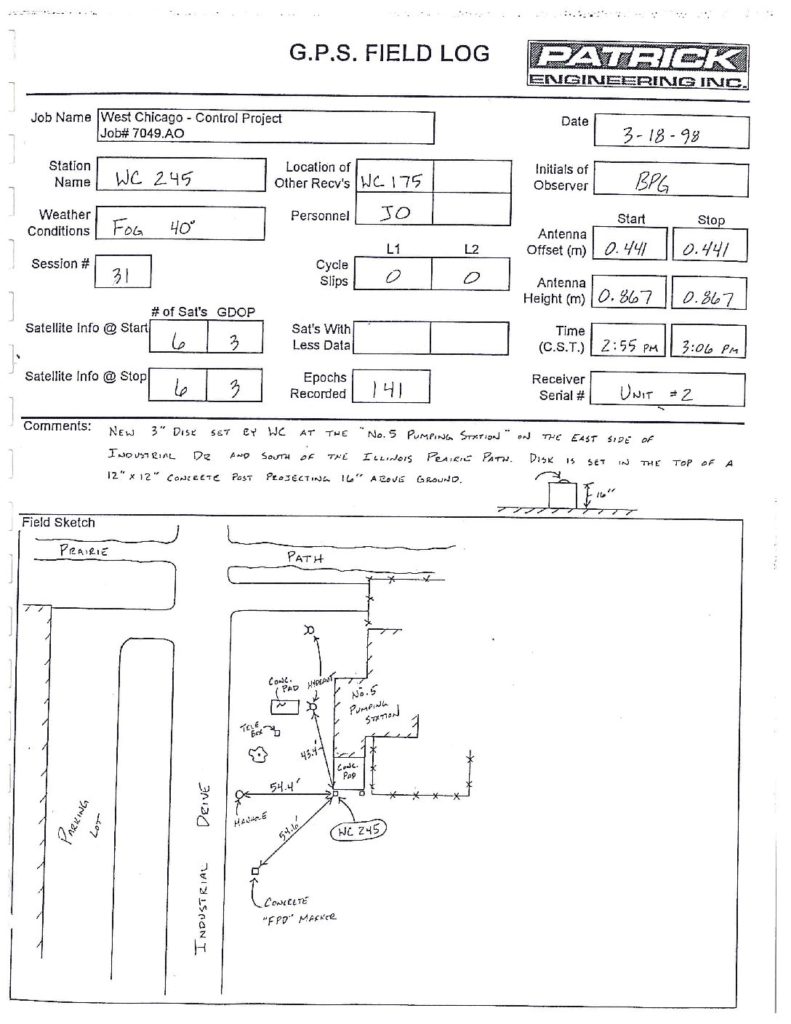 G.P.S. FIELD LOG
PATRICK
ENGINEERING INC.
Job Name
West Chicago - Control Project
Job# 7049.AO
Date
3-18-98
Station
Name
WC 245
Location of
Other Recv's
WC 175
Initials of
Observer
BPG
Weather
Conditions
FOG 40°
Personnel
JO
Start
Stop
Antenna
Offset (m)
0.441
0.441
Session #
31
L1
L2
Cycle
Slips
0
0
Antenna
Height (m)
0.867
0.867
# of Sat's
GDOP
Satellite Info @ Start
6
3
Sat's With
Less Data
Time
(C.S.T.)
2:55 PM
3:06 PM
Satellite Info @ Stop
6
3
Epochs
Recorded
141
Receiver
Serial #
UNIT #2
Comments:
NEW 3" DISK SET BY WC AT THE "NO. 5 PUMPING STATION" ON THE EAST SIDE OF
INDUSTRIAL DR AND SOUTH OF THE ILLINOIS PRAIRIE PATH. DISK IS SET IN THE TOP OF A
12" X 12" CONCRETE POST PROJECTING 16" ABOVE GROUND.
16"
Field Sketch
PRAIRIE
PATH
CONC.
PAD
HYDRANT
NO. 5
PUMPING
STATION
TELE
BOX
43.4'
CONC.
PAD
54.4'
MANHOLE
WC 245
54.6'
PARKING
LOT
INDUSTRIAL DRIVE
CONCRETE
"FPD" MARKER